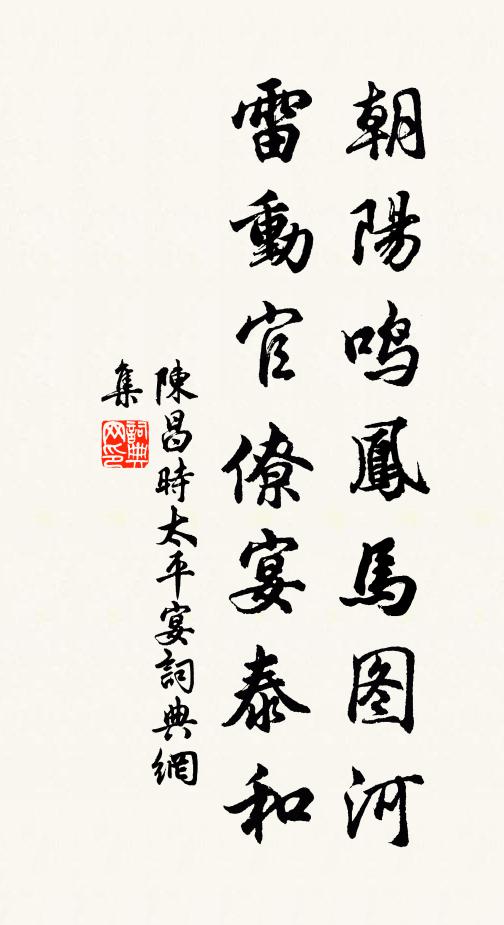 朝陽鳴鳳馬图河
雷動官僚宴泰和
陳昌時太平宴詞典網
集
詞典网印